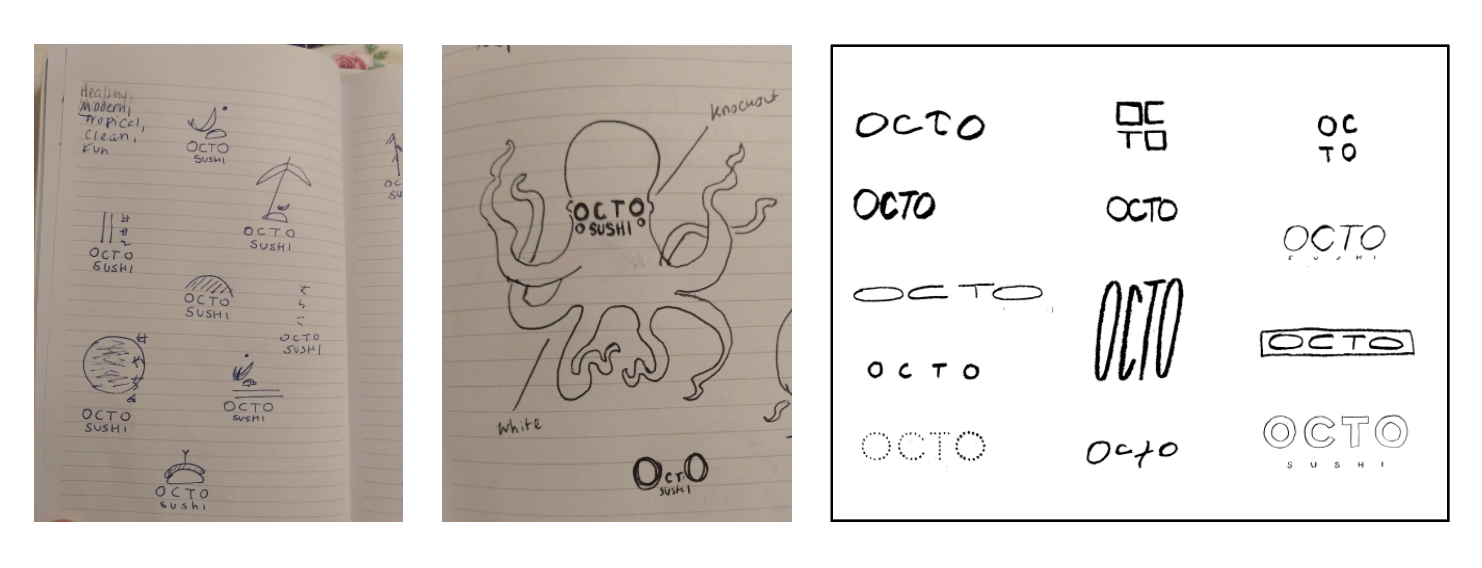 Healthy,
Modern,
Tropical,
Clean,
Fun
OCTO
SUSHI
OCTO
SUSHI
OCTO
SUSHI
OCTO
SUSHI
OCTO
SUSHI
OCTO
SUSHI
OCTO
SUSHI
OCTO
SUSHI
OC
SU
Knockout
OCTO
SUSHI
White
OCTO
SUSHI
OCTO
OC
TO
OC
TO
OCTO
OCTO
OCTO
SUSHI
OCTO
OCTO
OCTO
OCTO
OCTO
Octo
OCTO
SUSHI